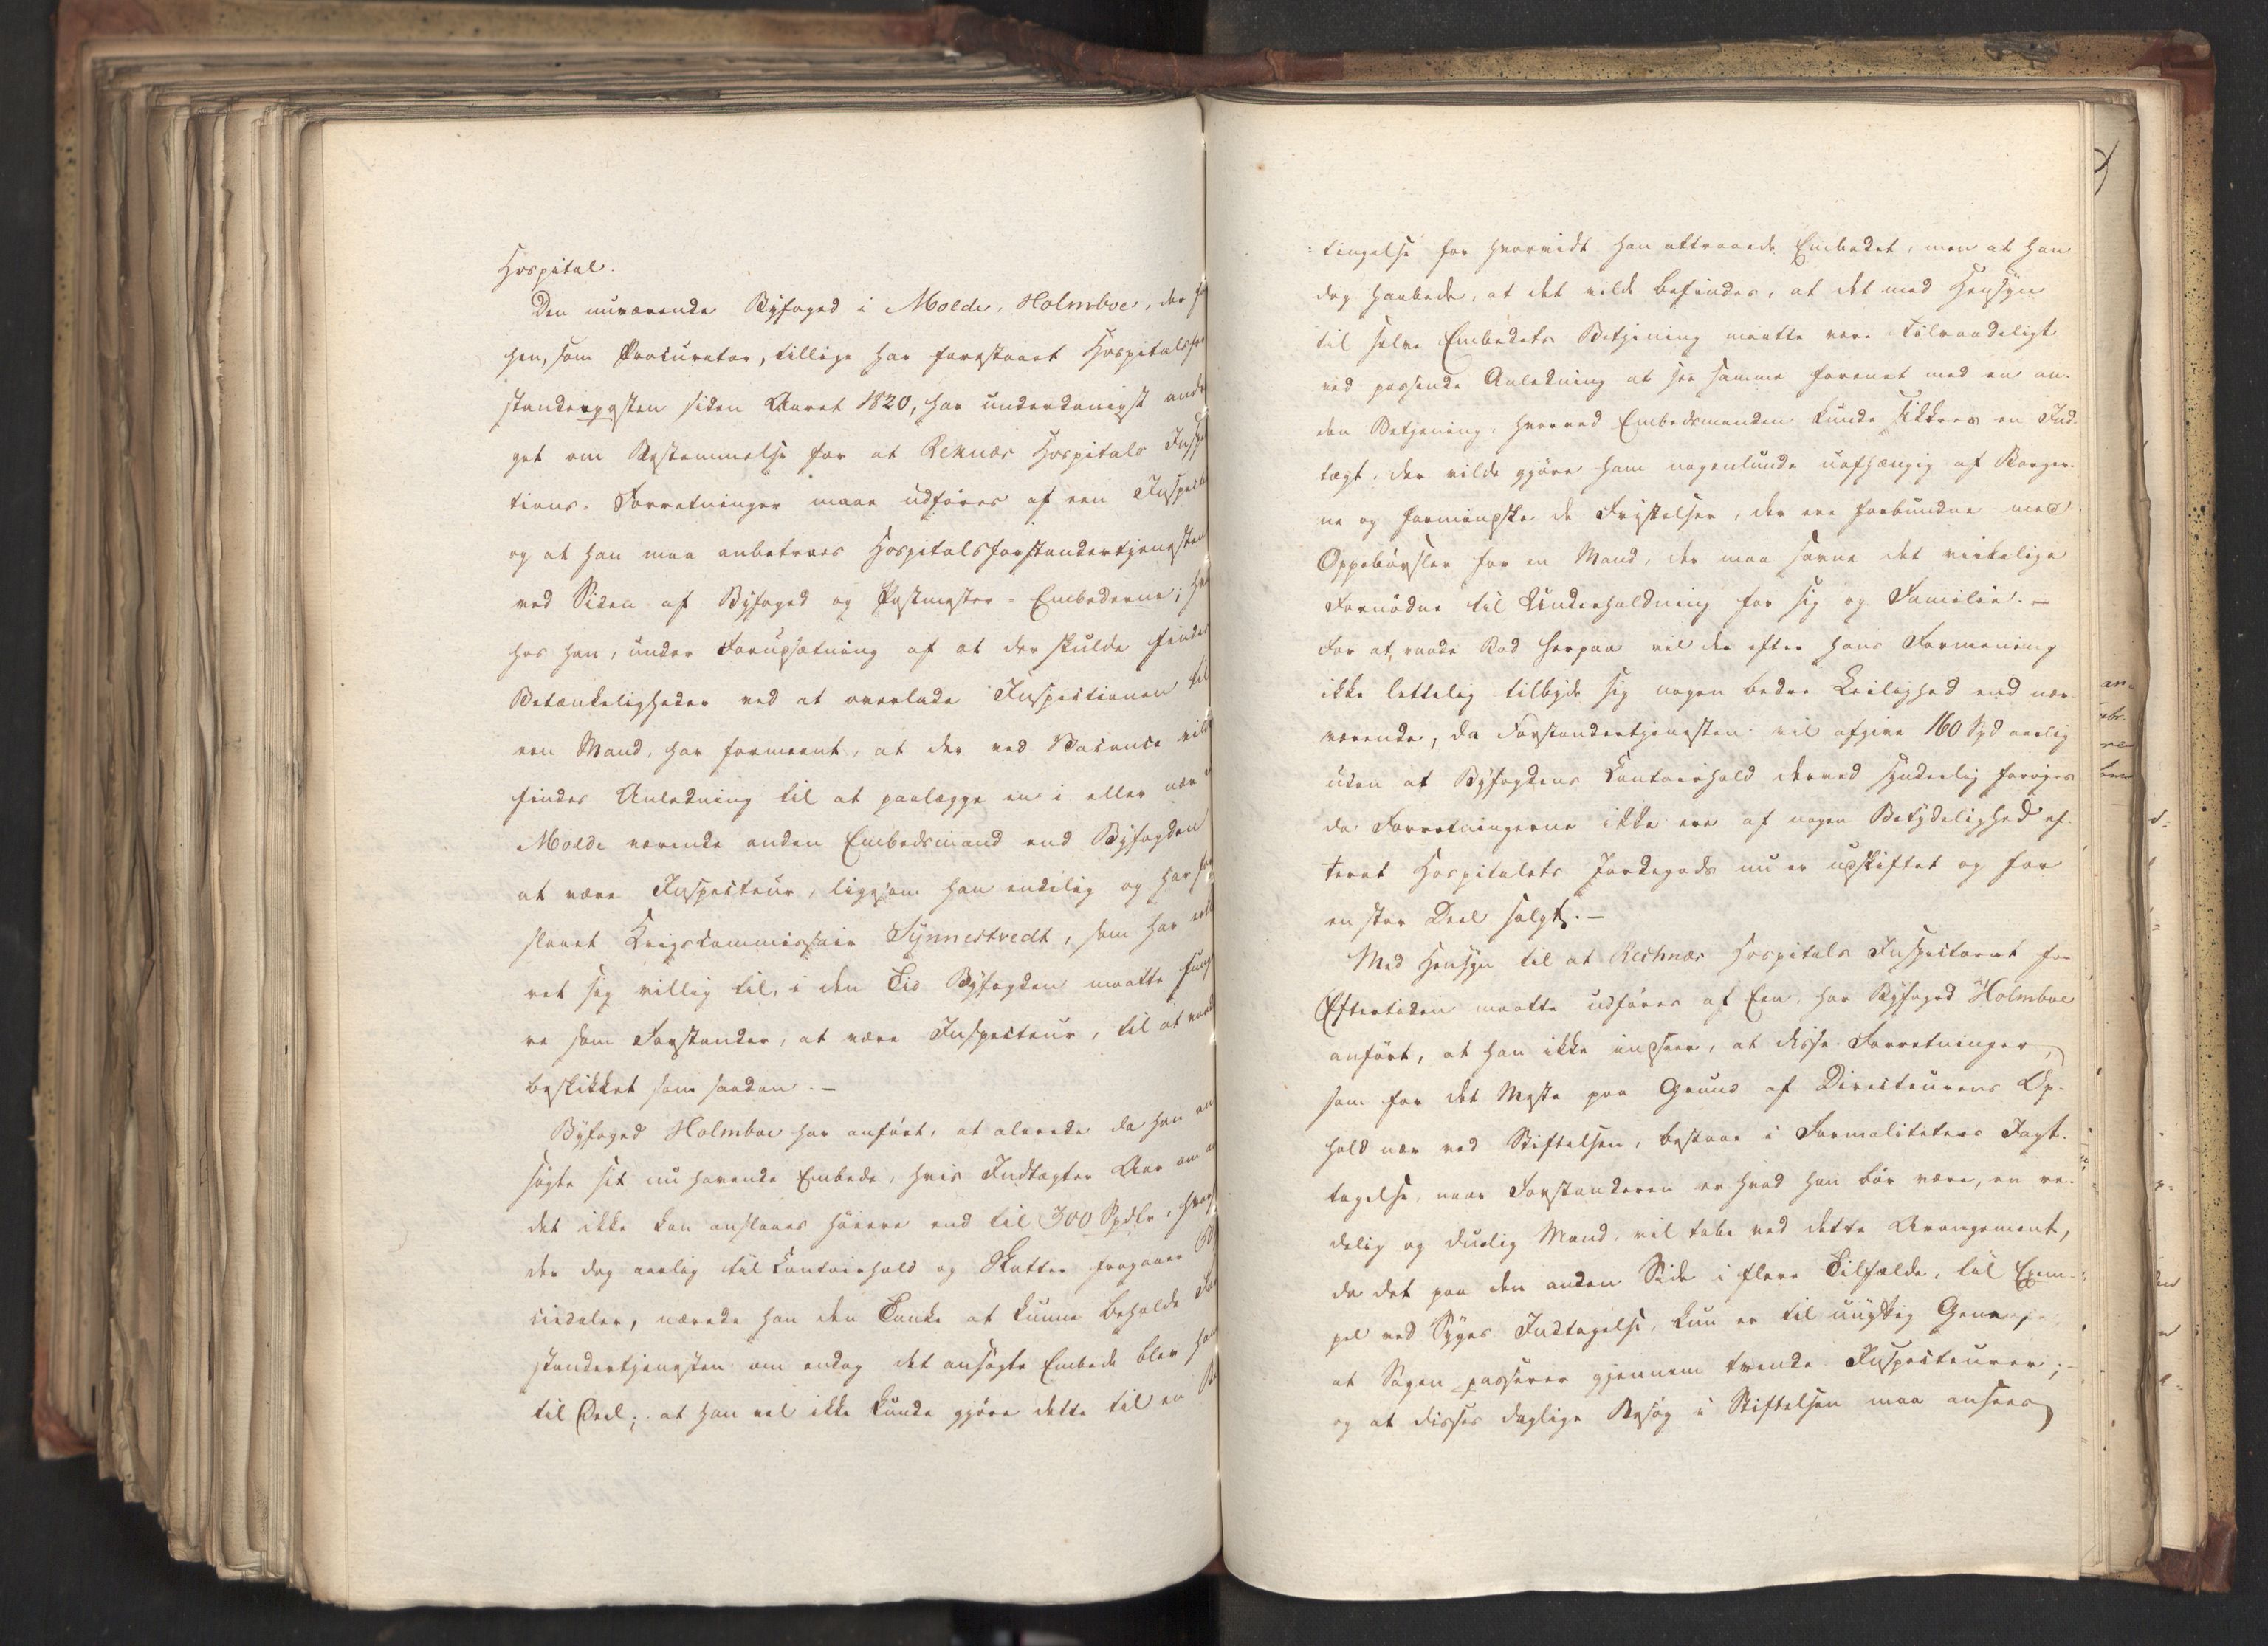 Hospital.
Den nuværende Byfoged i Molde, Holmboe, der
hen, som Procurator, tillige har forestaaet Hospitalsfor
standerposten siden Aaret 1820, har underdanigst andra
get om Bestemmelse for at Reknæs Hospitals Inspec
tions-Forretninger maae udføres af een Inspecteur
og at han maa anbetroes Hospitalsforstandertjenesten
ved Siden af Byfoged og Postmester-Embederne;
hos han, under Forudsætning af at der skulde findes
Betænkeligheder ved at overlade Inspectionen til
een Mand, har formeent, at der ved Vacance vil
findes Anledning til at paalægge en i eller nær
Molde værende anden Embedsmand end Byfogden
at være Inspecteur, ligesom han endelig og har fore
slaaet Krigscommissair Synnestvedt, som har erklæ
ret sig villig til, i den Tid Byfogden maatte funge
re som Forstander, at være Inspecteur, til at vorde
beskikket som saadan. -
Byfoged Holmboe har anført, at alerede da han an
søgte sit nu havende Embede, hvis Indtægter Aar om
det ikke kan anslaaes høiere end til 300 Spdlr,
der dog aarlig til Contoirhold og Skatter fragaaer
ciedaler, nærede han den Tanke at kunne beholde For
standertjenesten om endog det ansøgte Embede blev ham
til Deel; at han vel ikke kunde gjøre dette til en Be
tingelse for hvorvidt han attraaede Embedet, men at han
dog haabede, at det vilde befindes, at det med Hensyn
til selve Embedets Betjening maatte være tilraadeligt
ved passende Anledning at see samme forenet med en an-
den Betjening, hvorved Embedsmanden kunde sikkres en Ind-
tægt, der vilde gjøre ham nogenlunde uafhængig af Borger-
ne og formindske de Fristelser, der ere forbundne med
Oppebørsler for en Mand, der maa savne det virkelige
Fornødne til Underholdning for sig og Familie. -
For at raade Bod herpaa vil der efter hans Formening
ikke lettelig tilbyde sig nogen bedre Leilighed end nær-
værende, da Forstandertjenesten vil afgive 160 Spd aarlig
uden at Byfogdens Contoirhold derved synderlig forøges
da Forretningerne ikke ere af nogen Betydelighed ef-
teråt Hospitalets Jordegods nu er udskiftet og for
en stor Deel solgt. -
Med Hensyn til at Rechnæs Hospitals Inspectorat for
Eftertiden maatte udføres af Een, har Byfoged Holmboe
anført, at han ikke indseer, at disse Forretninger,
som for det Meste paa Grund af Directeurens Op-
hold nær ved Stiftelsen, bestaae i Formaliteters Iagt-
tagelse, naar Forstanderen er hvad han bør være, en re-
delig og duelig Mand, vil tabe ved dette Arrangement,
da det paa den anden Side i flere Tilfælde, til Exem-
pel ved Syges Indtagelse, kun er til unyttig Gene,
at Sagen passerer gjennem tvende Inspecteurer; -
og at disses daglige Besøg i Stiftelsen maa ansees